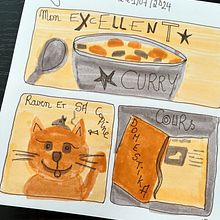 21/07/2024
Mon EXCELLENT
CURRY
Raven Et SA Copine
COURS
DOMESTIKA